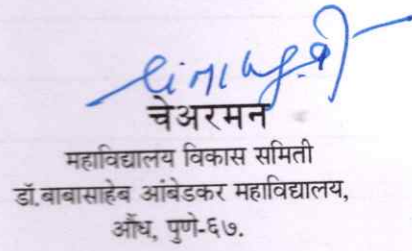 चेअरमन
महाविद्यालय विकास समिती
डॉ.बाबासाहेब आंबेडकर महाविद्यालय,
औंध, पुणे-६७.